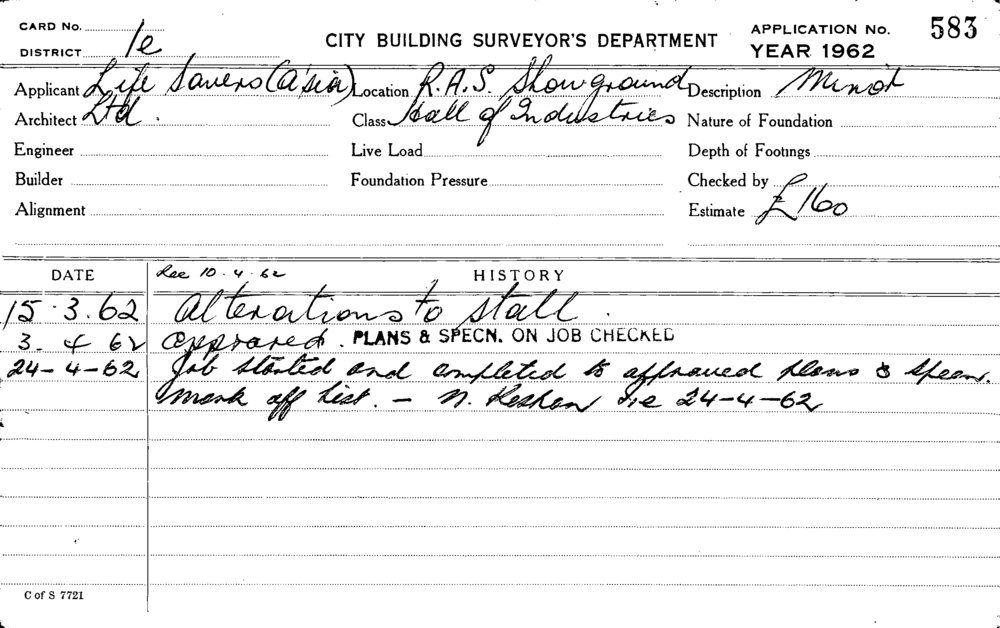 CARD No.
DISTRICT 1e
CITY BUILDING SURVEYOR'S DEPARTMENT
APPLICATION No. 583
YEAR 1962
Applicant Life Savers (A'sia) Location R.A.S. Showground Description Minor
Architect Ltd. Class Hall of Industries Nature of Foundation
Engineer Live Load Depth of Footings
Builder Foundation Pressure Checked by
Alignment Estimate £160
DATE Rec 10.4.62 HISTORY
15.3.62 Alterations to stall.
3.4 62 approved. PLANS & SPECN. ON JOB CHECKED
24-4-62 Job started and completed to approved plans & specn.
Mark off list. - N. 1e 24-4-62
C of S 7721